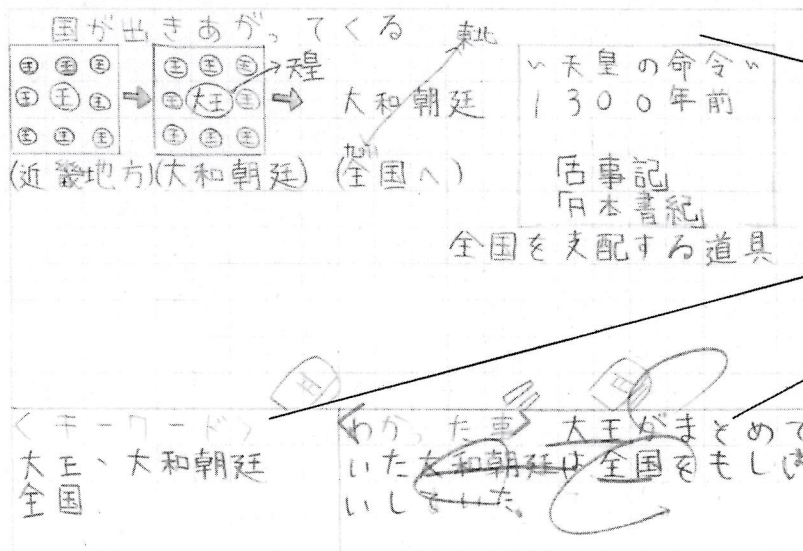 国が出きあがってくる
東北
王 国 王 王 王 王
天皇
王 王 国 大王 国 大和朝廷
王 王 王 王 王 王
九州
(近畿地方)(大和朝廷) (全国へ)
〜天皇の命令〜
1300年前
「古事記」
「日本書紀」
全国を支配する道具
<キーワード>
大王、大和朝廷
全国
<わかった事> 大王がまとめて
いた大和朝廷は全国をもしは
いしていた。